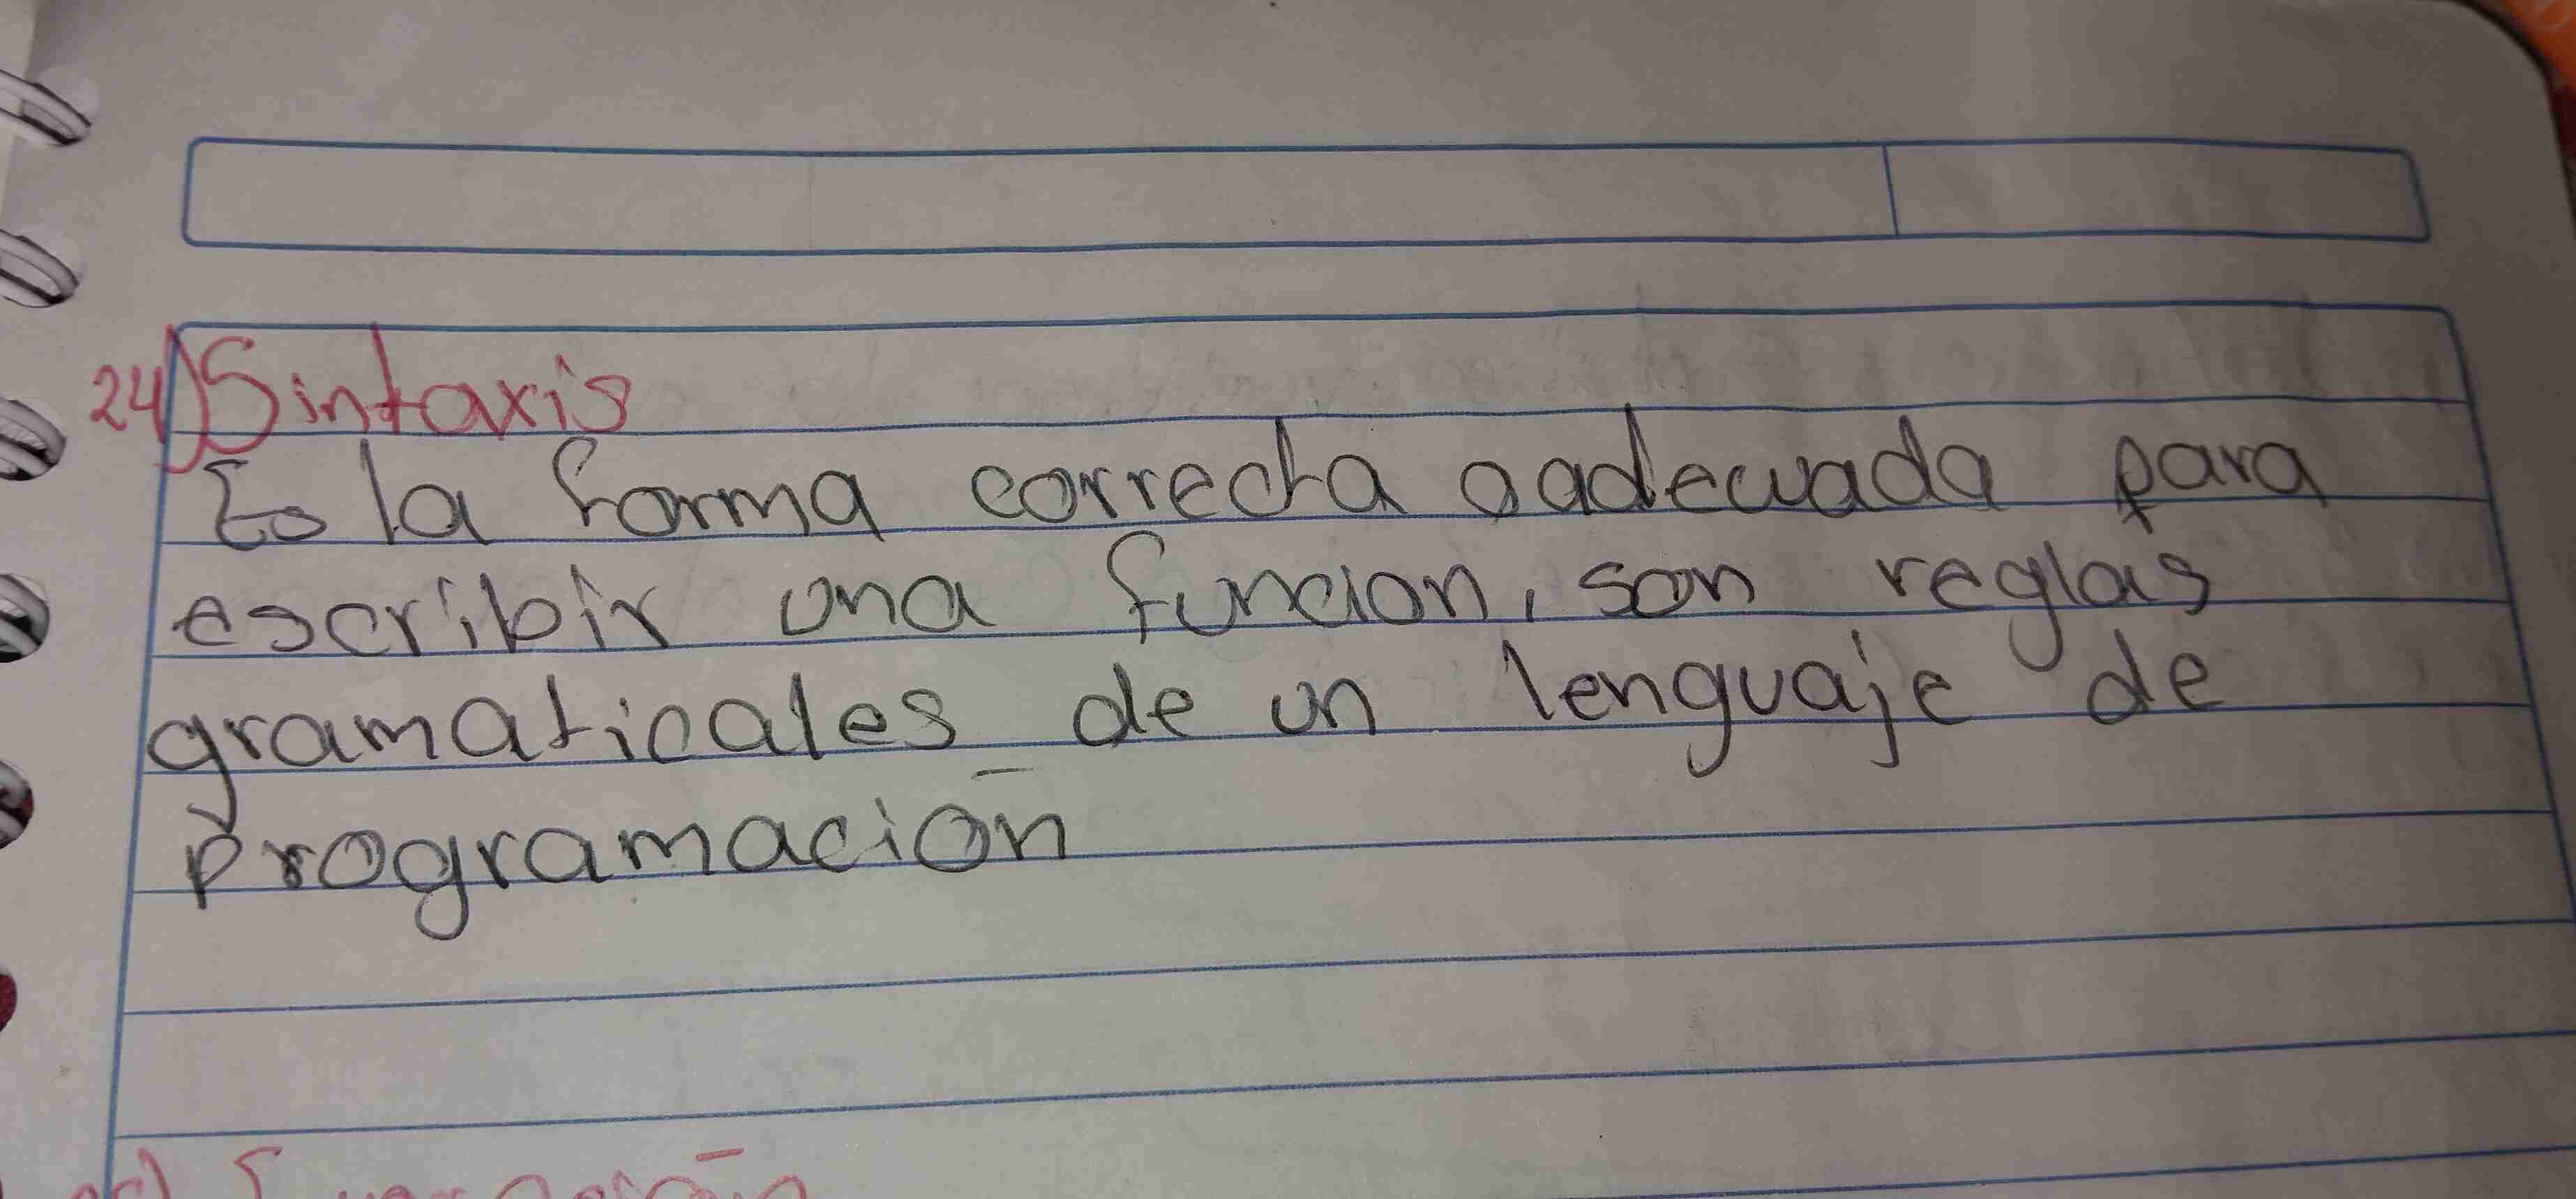 24) Sintaxis
Es la forma correcta o adecuada para
escribir una funcion, son reglas
gramaticales de un lenguaje de
programación